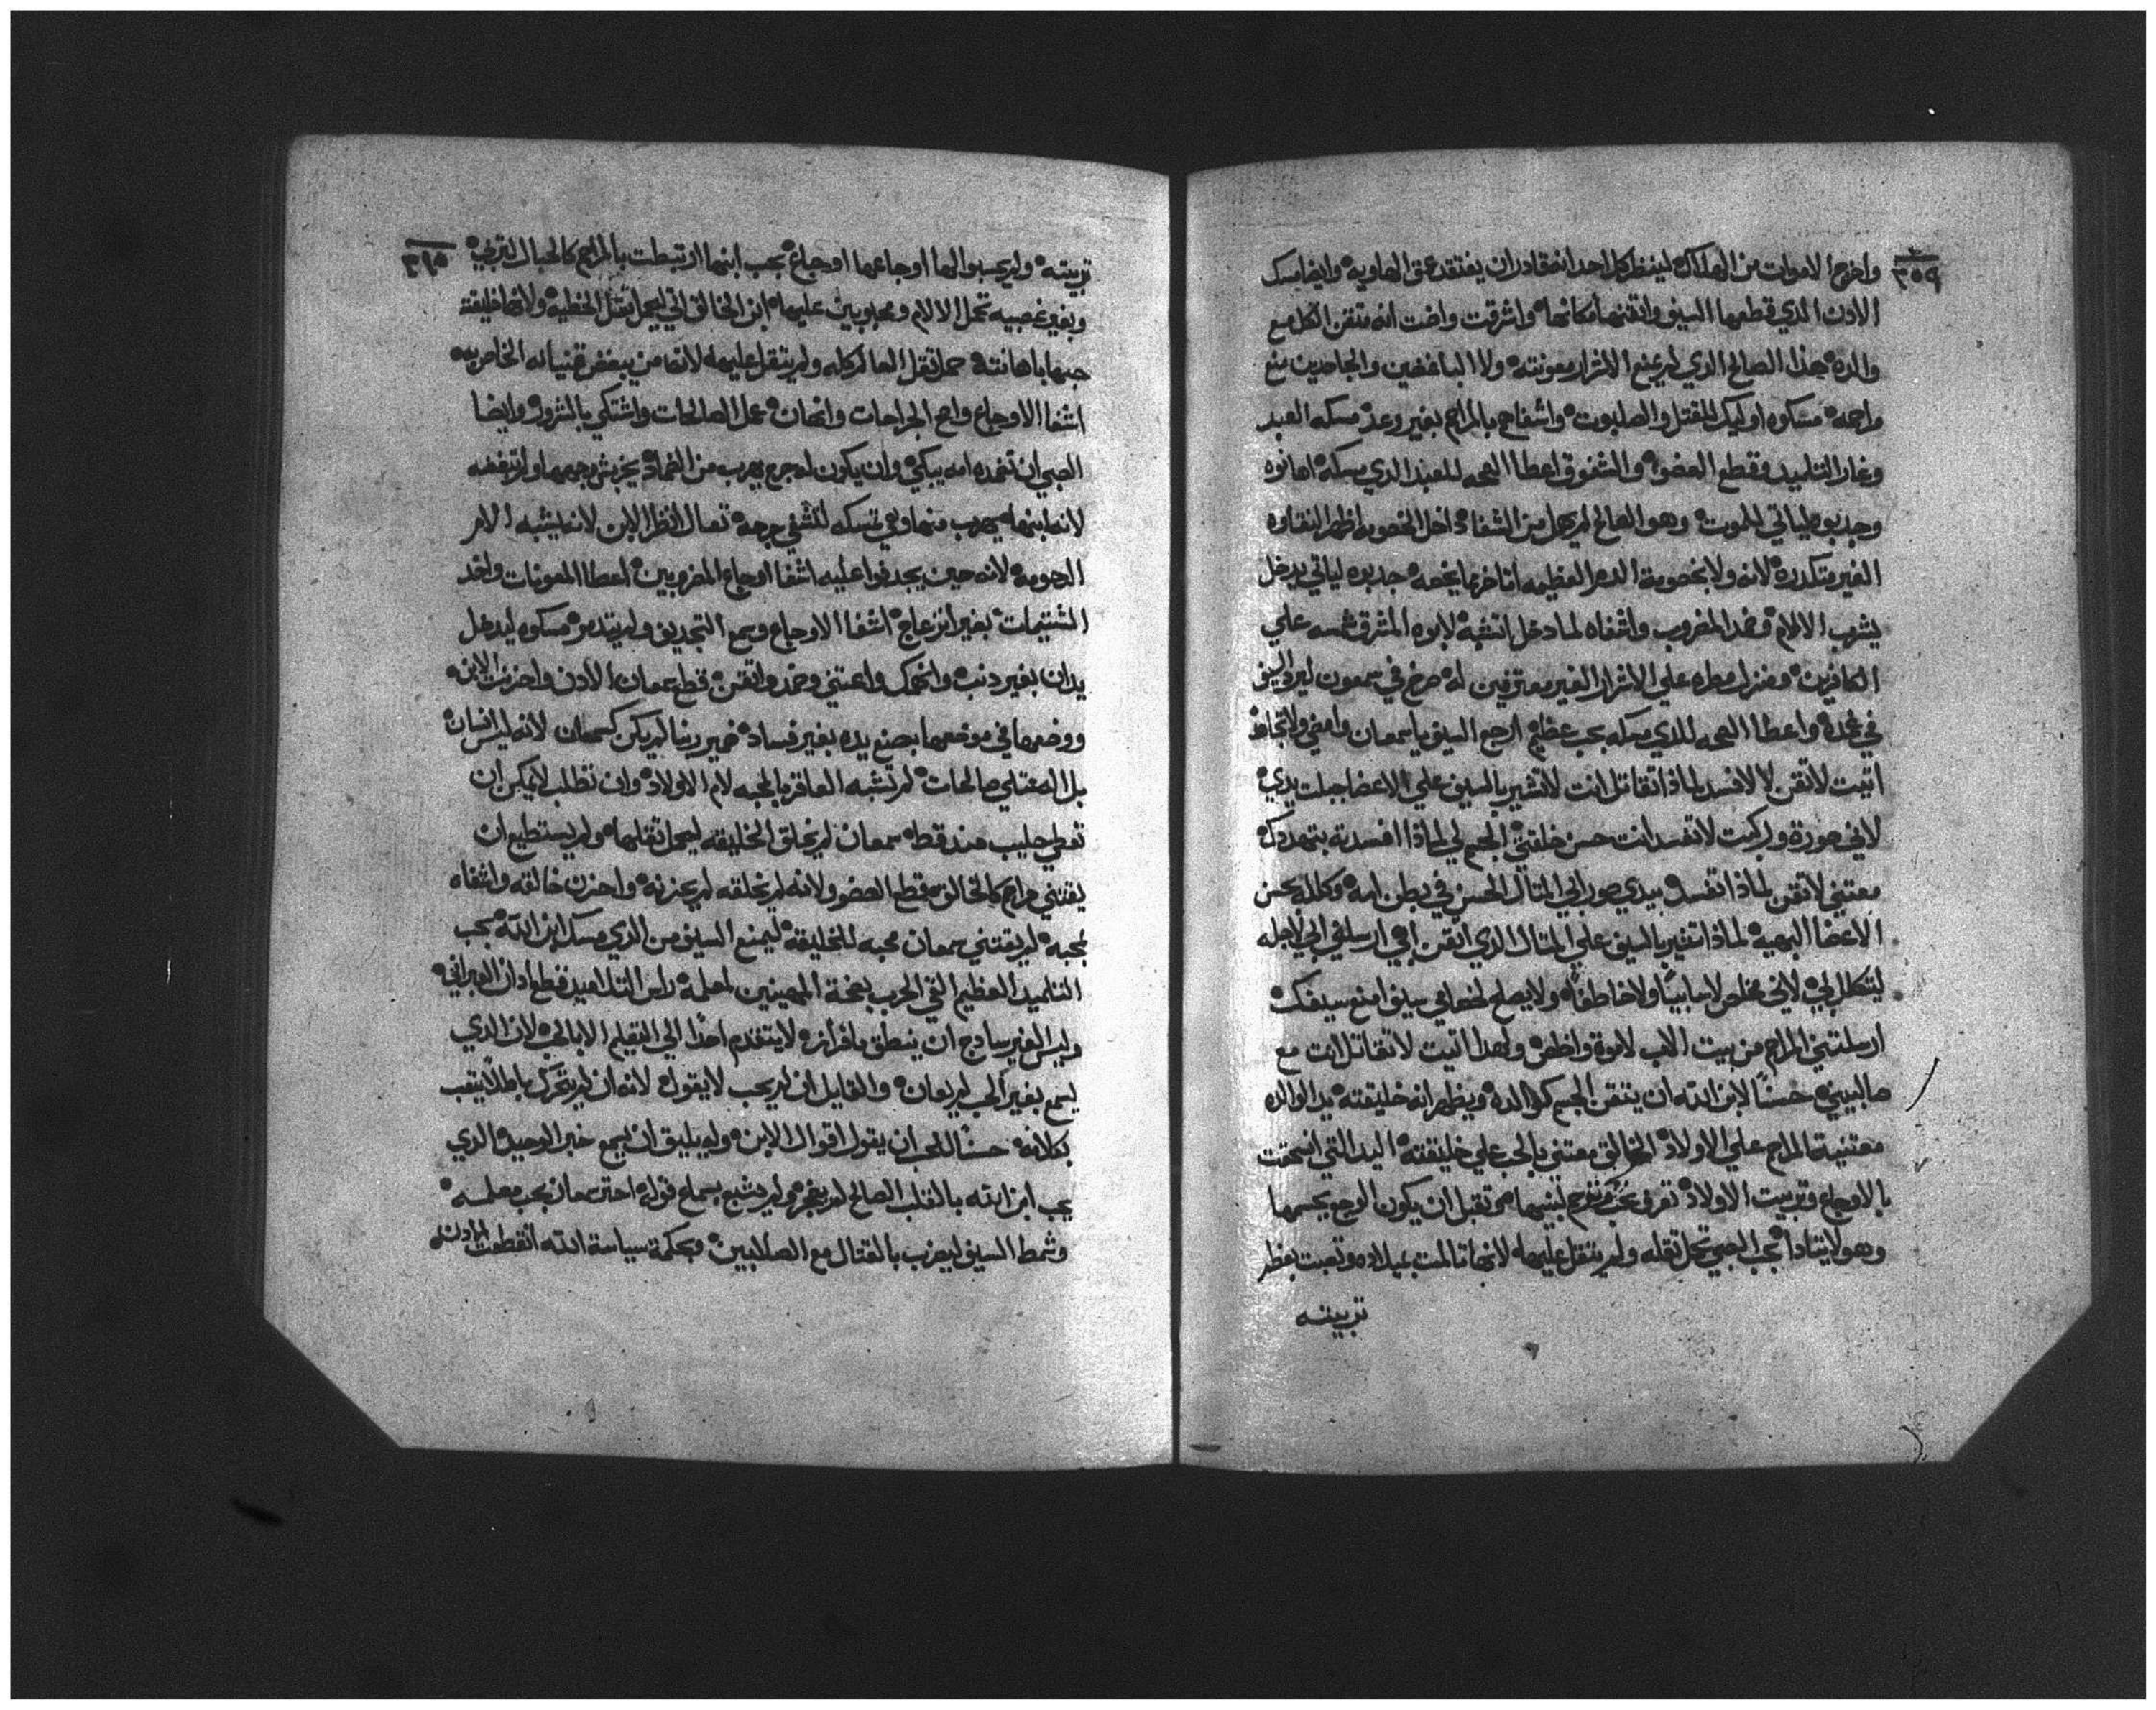 ٣٥٩
واخرج الاموات من الهلاك لينظر كل احد انه قادر ان يفتقد عمق الهاويه وايضا مسك
الادن الذي قطعها السيف واتقنها مكانها واشرقت واضت انه متقن الكل مع
والده هذا الصالح الذي لم يمنع الاشرار معونته ولا الباغضين والجاحدين منع
مراحمه مسكوه اوليك للقتل والصلبوت واشفاهم بالمراحم بغير وعد مسكه العبد
وغار التلميد وقطع العضو والشفوق اعطا الصحه للعبد الذي مسكه اهانوه
وجدبوه لياتي للموت وهو الصالح لم يهمل من الشفا داخل الخصومه اظهر النقاوه
الغير متكدره لانه ولا بخصومة الدهر العظيمه اتاخر بما يخصه جدبوه لياتي يدخل
يشرب الالام وضمد المضروب واشفاه لما دخل اتشبه لابوه المشرق شمسه علي
الكافرين ومنزل مطره علي الاشرار الغير معترفين له صرخ في سمعون ليرد السيف
في غمده واعطا الصحه للذي مسكه بحب عظيم ارجع السيف ياسمعان وامضي ولا تخاف
اتيت لاتقن لا لافسد لماذا تقاتل انت لا تشير بالسيف علي الاعضا جبلت يدي
لاني صورة وركبت لا تفسد انت حسن خلقتي الجسم لي لماذا افسدته بتهددك
معتني لاتقن لماذا تفسد بيدي صور ابي المثال الحسن في بطن امه وكلله بحسن
الاعضا البهيه لماذا تشير بالسيف علي المثال الذي اتقن ابي ارسلني ابي لاجله
ليتكلل بي لاني مخلص لا سابيًا ولا خاطفًا ولا يصلح لخدامي سيف امنع سيفك
ارسلتني المراحم من بيت الاب لاموت واظهر ولهدا اتيت لا تقاتل انت مع
صالبيني حسنًا لابن الله ان يتقن الجسم كوالده ويظهر انه خليقته يد الوالده
معتنية المراحم علي الاولاد الخالق معتني بالحب علي خليقته اليد التي انسحقت
بالاوجاع وتربيت الاولاد تعرف تحب وتوجع لبنيها وتقبل ان يكون الوجع بجسمها
وهو لا يتاذا بحب الصبي تحمل تقله ولم يتقل عليها لانها تالمت بميلاده وتعبت بعظم
تربيته
٣٦٠
تربيته ولم يحسبوا لها اوجاعها اوجاع بحب ابنها ارتبطت بالمراحم كالحبال لتربي
وبغير غصبيه تحمل الالام ومحبوبين عليها ابن الخالق اتي ليحمل تقل الخطيه ولانها خليقته
حبها باهانته حمل تقل العالم كله ولم يتقل عليه لانه من يبغض قنيانه الخاص به
اشفا الاوجاع واعم الجراحات واتهان عمل الصالحات واشتكي بالشرور وايضا
الصبي ان تضمده امه يبكي وان يكون له جرح يهرب من الضماد يخربش وجهها ولم تبغضه
لانه ابنها يهرب منها وهي تمسكه لتشفي جرحه تعال انظر الابن لانه يشبه الام
الرحومه لانه حين يجدفوا عليه اشفا اوجاع المضروبين اعطا المعونات واخد
الشتيمات بغير انزعاج اشفا الاوجاع وسمع التجديف ولم يتدمر مسكوه ليدخل
يدان بغير دنب وانهمك واعتني وضمد واتقن قطع سمعان الادن واحزنت الابن
ووضعها في موضعها بصنع يده بغير فساد ضمير ربنا لم يكن كسمعان لانه ليس انسان
بل اله ممتلي صالحات لم تشبه العاقر بالمحبه لام الاولاد وان تطلب لا يمكن ان
تعطي حليب من قط سمعان لم يخلق الخليقه ليحمل تقلها ولم يستطيع ان
يقتني مراحم كالخالق قطع العضو ولانه لم يخلقه لم يحزنه واحزن خالقه واشفاه
بحبه لم يقتني سمعان محبه للخليقة ليمنع السيف من الذي مسك ابن الله بحب
التلميد العظيم القي الحرب بضجة المهينين لمعلمه راس التلاميد قطع ادن العبراني
وليس الغير سادج ان ينطق بافرازه لا يتقدم احدًا الي التعليم الا بالحب لان الذي
يسمع بغير الحب لم يعان والقايل ان لم يحب لا يقول لانه ان لم يتحرك باطلًا يتعب
بكلامه حسنًا للمحب ان يقول اقوال الابن وله يليق ان يسمع خبر الوحيد الذي
يحب ابن الله بالقلب الصالح لم يضجر ولم يشبع بسماع قوله احتر سمعان بحب معلمه
وشمط السيف ليضرب بالقتال مع الصالبين وبحكمة سياسة الله انقطعت الادن